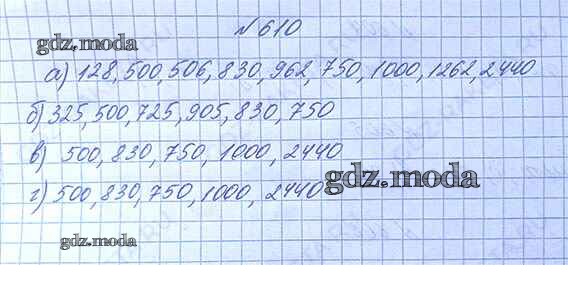 № 610
gdz.moda
а) 128, 500, 506, 830, 962, 750, 1000, 1262, 2440
б) 325, 500, 725, 905, 830, 750
в) 500, 830, 750, 1000, 2440
gdz.moda
г) 500, 830, 750, 1000, 2440
gdz.moda